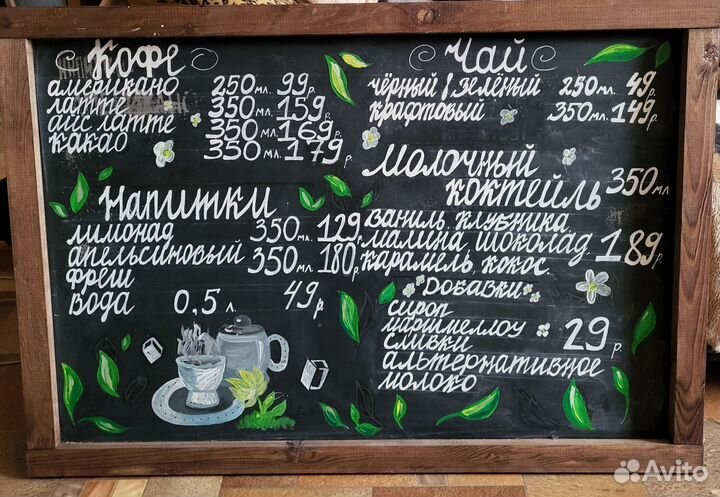 Кофе
американо 250 мл. 99 р.
латте 350 мл. 159 р.
айс латте 350 мл. 169 р.
какао 350 мл. 179 р.
Напитки
лимонад 350 мл. 129 р.
апельсиновый фреш 350 мл. 180 р.
вода 0,5 л. 49 р.
Чай
чёрный / зелёный 250 мл. 49 р.
крафтовый 350 мл. 149 р.
Молочный
коктейль 350 мл
ваниль, клубника,
малина, шоколад 189 р.
карамель, кокос.
Добавки
сироп
маршмеллоу 29 р.
сливки
альтернативное
молоко
Avito